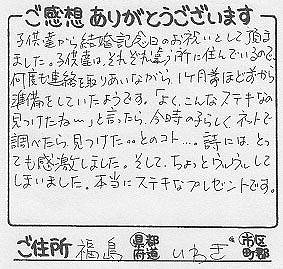 ご感想ありがとうございます
子供達から結婚記念日のお祝いとして頂き
ました。子供達は、それぞれ違う所に住んでいるので、
何度も連絡を取りあいながら、1ヶ月等ほど前から
準備をしていたようです。「よく、こんなステキなの
見つけたね〜」と言ったら、今時の子らしく、ネットで
調べたら、見つけた‥とのコト…。詩には、とっ
ても感激しました。そして、ちょっとウルウルして
しまいました。本当にステキなプレゼントです。
ご住所 福島 都道府県 いわき 市区町郡